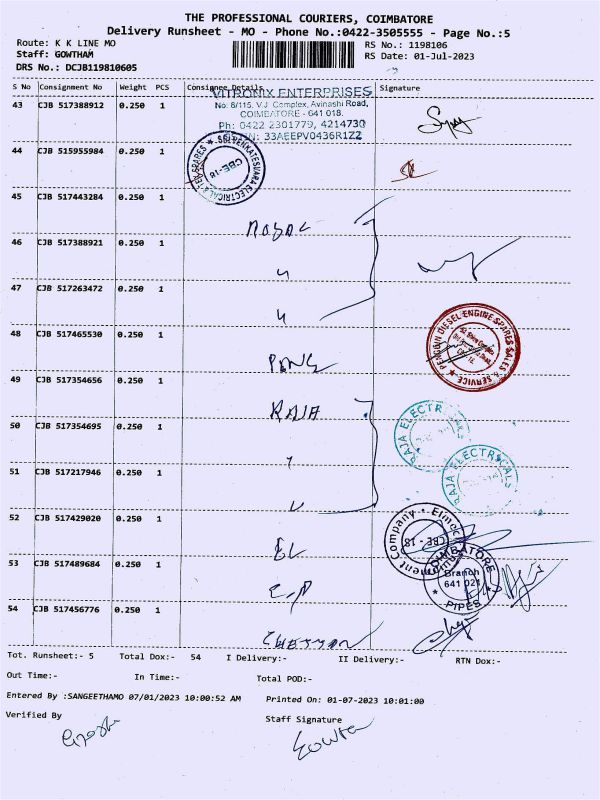 THE PROFESSIONAL COURIERS, COIMBATORE
Delivery Runsheet - MO - Phone No.:0422-3505555 - Page No.:5
Route: K K LINE MO
RS No.: 1198106
Staff: GOWTHAM
RS Date: 01-Jul-2023
DRS No.: DCJB119810605
S No Consignment No Weight PCS Consignee Details Signature
VITRONIX ENTERPRISES
No. 6/115, V.J. Complex, Avinashi Road,
COIMBATORE - 641 018.
Ph: 0422 2301779, 4214730
33AEEPV0436R1ZZ
43 CJB 517388912 0.250 1
44 CJB 515955984 0.250 1
SRI VENKATESWARA ELECTRICAL SPARES
CBE-18
45 CJB 517443284 0.250 1
46 CJB 517388921 0.250 1
47 CJB 517263472 0.250 1
48 CJB 517465530 0.250 1
PENGUIN DIESEL ENGINE SPARES SALES & SERVICE
49 CJB 517354656 0.250 1
RAJA
50 CJB 517354695 0.250 1
RAJA ELECTR
51 CJB 517217946 0.250 1
RAJA ELECTRICALS
52 CJB 517429020 0.250 1
CBE - 18
53 CJB 517489684 0.250 1
COIMBATORE
Branch
641 021
PIPES
54 CJB 517456776 0.250 1
Tot. Runsheet:- 5 Total Dox:- 54 I Delivery:- II Delivery:- RTN Dox:-
Out Time:- In Time:- Total POD:-
Entered By :SANGEETHAMO 07/01/2023 10:00:52 AM Printed On: 01-07-2023 10:01:00
Verified By Staff Signature